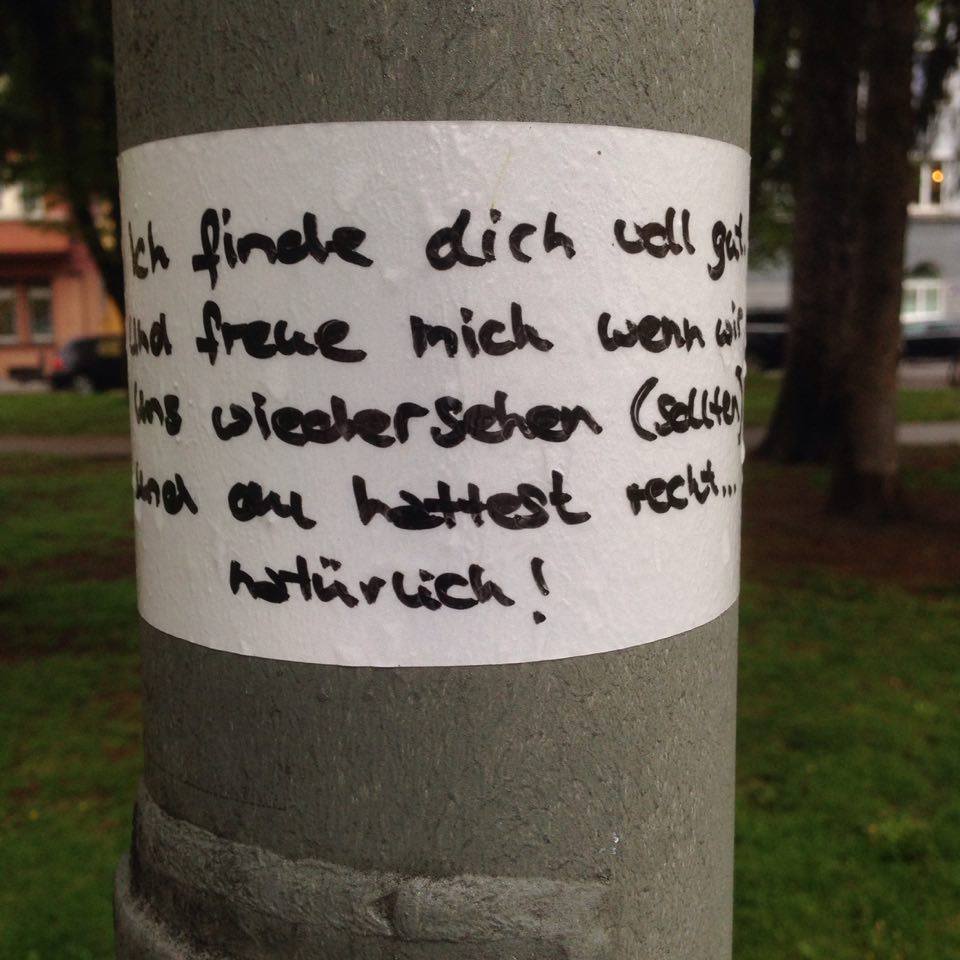 Ich finde dich voll gut.
und freue mich wenn wir
uns wiedersehen (sollten)
und du hattest recht...
natürlich!